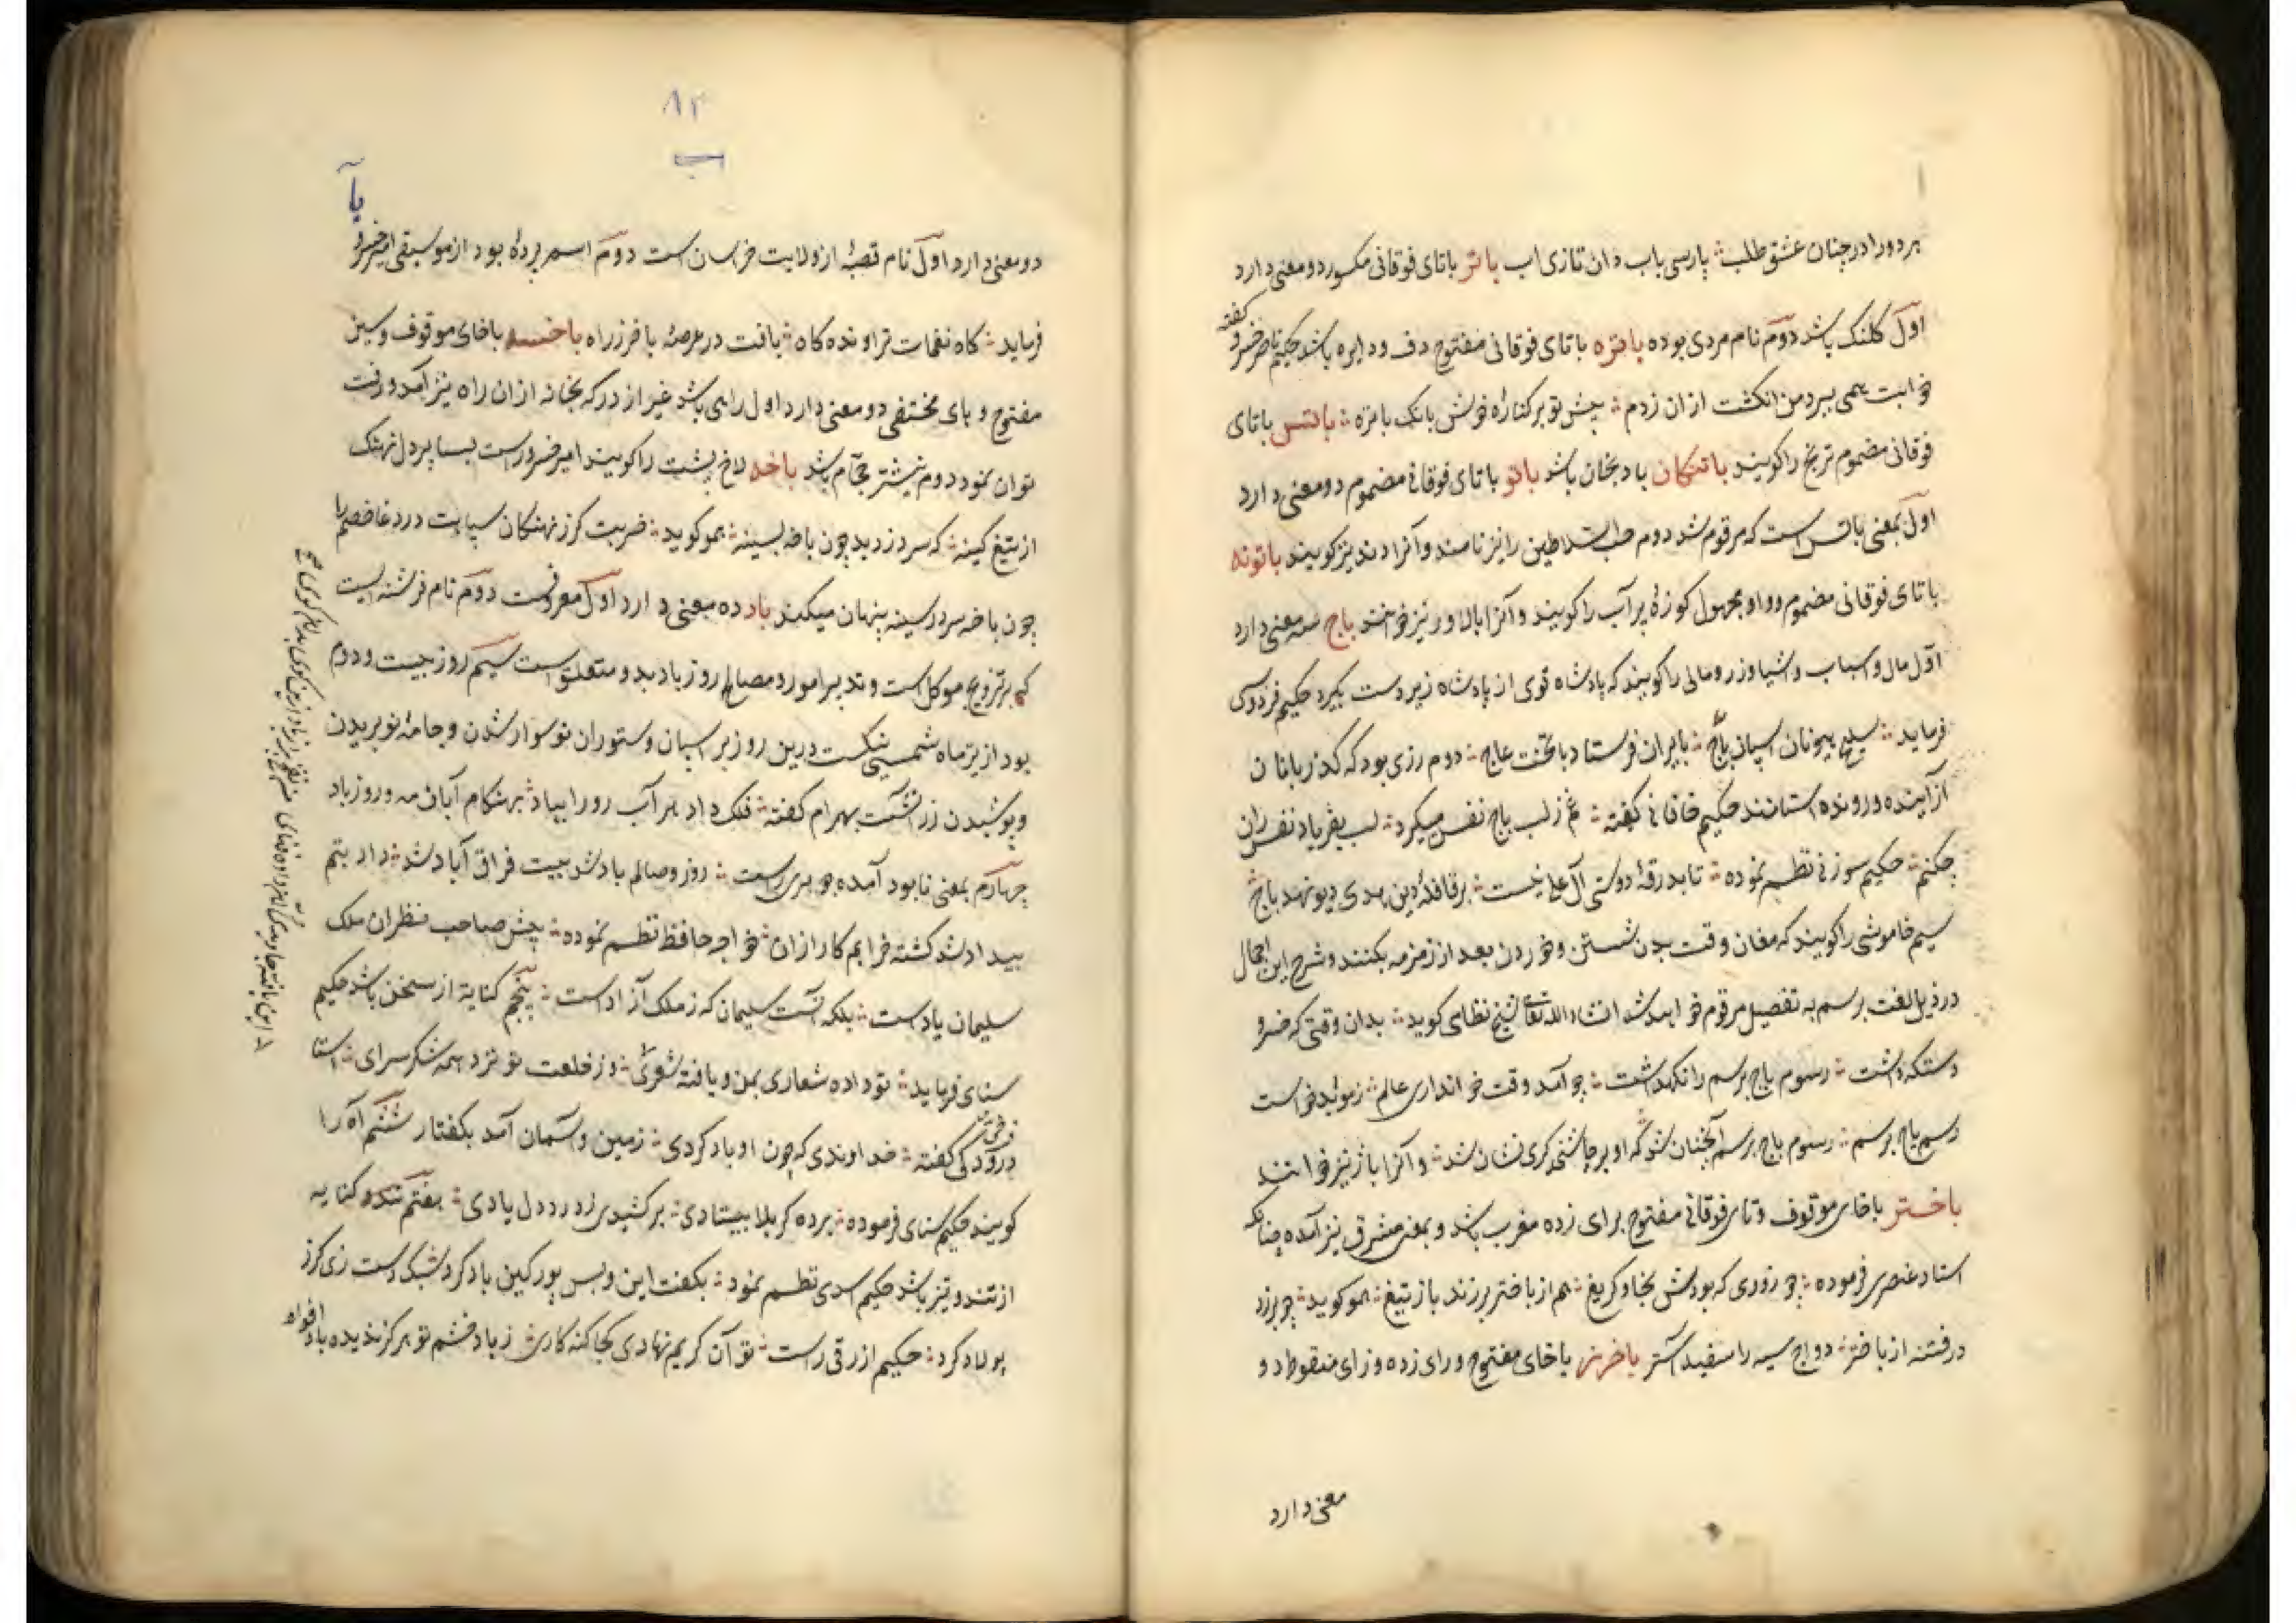 بر دو را در چنان عشق طلب پارسی باب دان تازی اب باتر باتای فوقانی مکسور دو معنی دارد
اول کلنک باشد دوم نام مردی بوده باتره باتای فوقانی مفتوح دف و دایره باشد حکیم ناصر خسرو گفته
خوابت همی ببرد من انکشت ازان زدم پیش تو بر کناره خوش بانک باتره باتس باتای
فوقانی مضموم ترنج را کویند باتنکان بادنجان باشد باتو باتای فوقانی مضموم دو معنی دارد
اول بمعنی باتس است که مرقوم شد دوم را نیز نامند و آنرا نیز کویند باتونه
باتای فوقانی مضموم و واو مجهول کوزهٔ پر آب را کویند و آنرا نیز خوانند باج سه معنی دارد
اول مال و اسباب و اشیا و زر و مالی را کویند که پادشاه قوی از پادشاه زیردست بکیرد حکیم فردوسی
فرماید اسپان باج بایران فرستاد با تخت عاج دوم زری بود که کذربانان
از آینده و رونده استانند حکیم خاقانی کفته غم ز لب باج نفس میکرد لب بفریاد نفس ران
چکنم حکیم سوزنی نظم نموده تا بدرقهٔ دوستی آل علی نیست بر قافلهٔ دین هدی دیو نهد باج
سیم خاموشی را کویند که مغان وقت بدن شستن و خوردن بعد از زمزمه بکنند و شرح این اجمال
در ذیل لغت برسم به تفصیل مرقوم خواهد شد انشاء الله تعالی شیخ نظامی کوید بدان وقتی که خسرو
داشت رسوم باج برسم را نکهداشت چو آمد وقت خوانداری عالم ز موبد خواست
رسم باج برسم رسوم باج برسم آنچنان شد که او بر چاشنی کری نشان شد و آنرا باژ نیز خوانند
باختر باخای موقوف و تای فوقانی مفتوح برای زده مغرب باشد و بمعنی مشرق نیز آمده چنانکه
استاد عنصری فرموده چو روزی که بودش بخاور کریغ هم از باختر برزند باز تیغ همو کوید چو برزد
درفشنده از باختر دواج سیه را سفید آستر باخرز باخای مفتوح و رای زده و زای منقوطه دو
معنی دارد
۸۳
ب
بآ
دو معنی دارد اول نام قصبهٔ از ولایت خراسان است دوم اسم پردهٔ بود از موسیقی امیر خسرو
فرماید کاه نغمات تر او نده کاه یافت در عرصهٔ باخرز راه باخسه باخای موقوف و سین
مفتوح و های مختفی دو معنی دارد اول راهی باشد غیر از در که بخانه ازان راه نیز آمد و رفت
توان نمود دوم نیشتر حجام باشد باخه لاخ پشت را کویند امیر خسرو راست بسا پر دل نهنک
از تیغ کینه که سر دزدید چون باخه بسینه همو کوید ضربت کرز نهنکان سپاهت در دغا خصم را
چون باخه سر در سینه پنهان میکند باد ده معنی دارد اول معروفست دوم نام فرشته ایست
که بر تزویج موکل است و تدبیر امور و مصالح روز باد بدو متعلق است سیم روز بیست و دوم
بود از هر ماه شمسی نیکست درین روز بر اسپان و ستوران نو سوار شدن و جامهٔ نو بریدن
و پوشیدن زرتشت بهرام کفته فلک داد مر آب رو را بیاد بهنکام آبان مه و روز باد
چهارم بمعنی نابود آمده جوهری راست روز وصالم باد شد بیت فراق آباد شد داد بتم
بیداد شد کشته فراهم کار ازان خواجه حافظ نظم نموده پیش صاحب نظران ملک
سلیمان باد است بلکه آنست سلیمان که ز ملک آزاد است پنجم کنایه از سخن باشد حکیم
سنای فرماید تو داده شعاری بمن و یافته شعری وز خلعت تو نزد همه شکر سرای استا
در کفته خداوندی که چون او باد کردی زمین و آسمان آمد بکفتار ششم آه را
کویند حکیم سنای فرموده بر ده کربلا بیستادی بر کشیدی ز درد دل بادی هفتم کنایه
از تند و تیز باشد حکیم اسدی نظم نمود بکفت این و بس پور کین باد کرد سبک دست زی کرز
پولاد کرد حکیم ازرقی راست تو آن کریم نهادی کجا ز باد خشم تو هرکز ندیده باد افراه